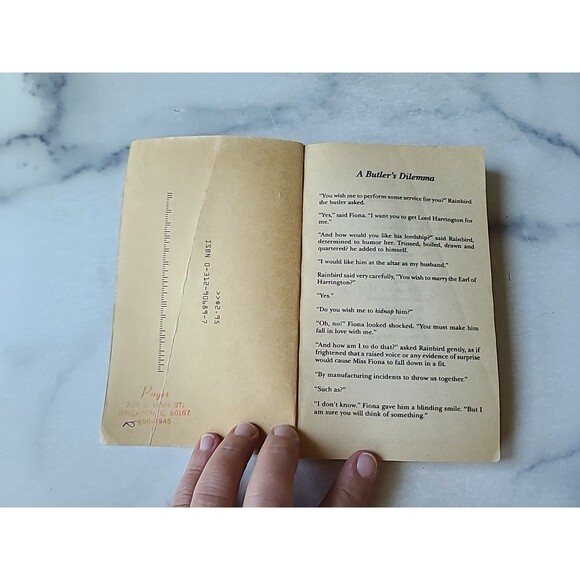 ISBN 0-312-90689-7
>>$2.95
Pages
MAIN ST.
WHEATON, IL 60187
A Butler's Dilemma
"You wish me to perform some service for you?" Rainbird
the butler asked.
"Yes," said Fiona. "I want you to get Lord Harrington for
me."
"And how would you like his lordship?" said Rainbird,
determined to humor her. Trussed, boiled, drawn and
quartered? he added to himself.
"I would like him at the altar as my husband."
Rainbird said very carefully, "You wish to marry the Earl of
Harrington?"
"Yes."
"Do you wish me to kidnap him?"
"Oh, no!" Fiona looked shocked. "You must make him
fall in love with me."
"And how am I to do that?" asked Rainbird gently, as if
frightened that a raised voice or any evidence of surprise
would cause Miss Fiona to fall down in a fit.
"By manufacturing incidents to throw us together."
"Such as?"
"I don't know." Fiona gave him a blinding smile. "But I
am sure you will think of something."